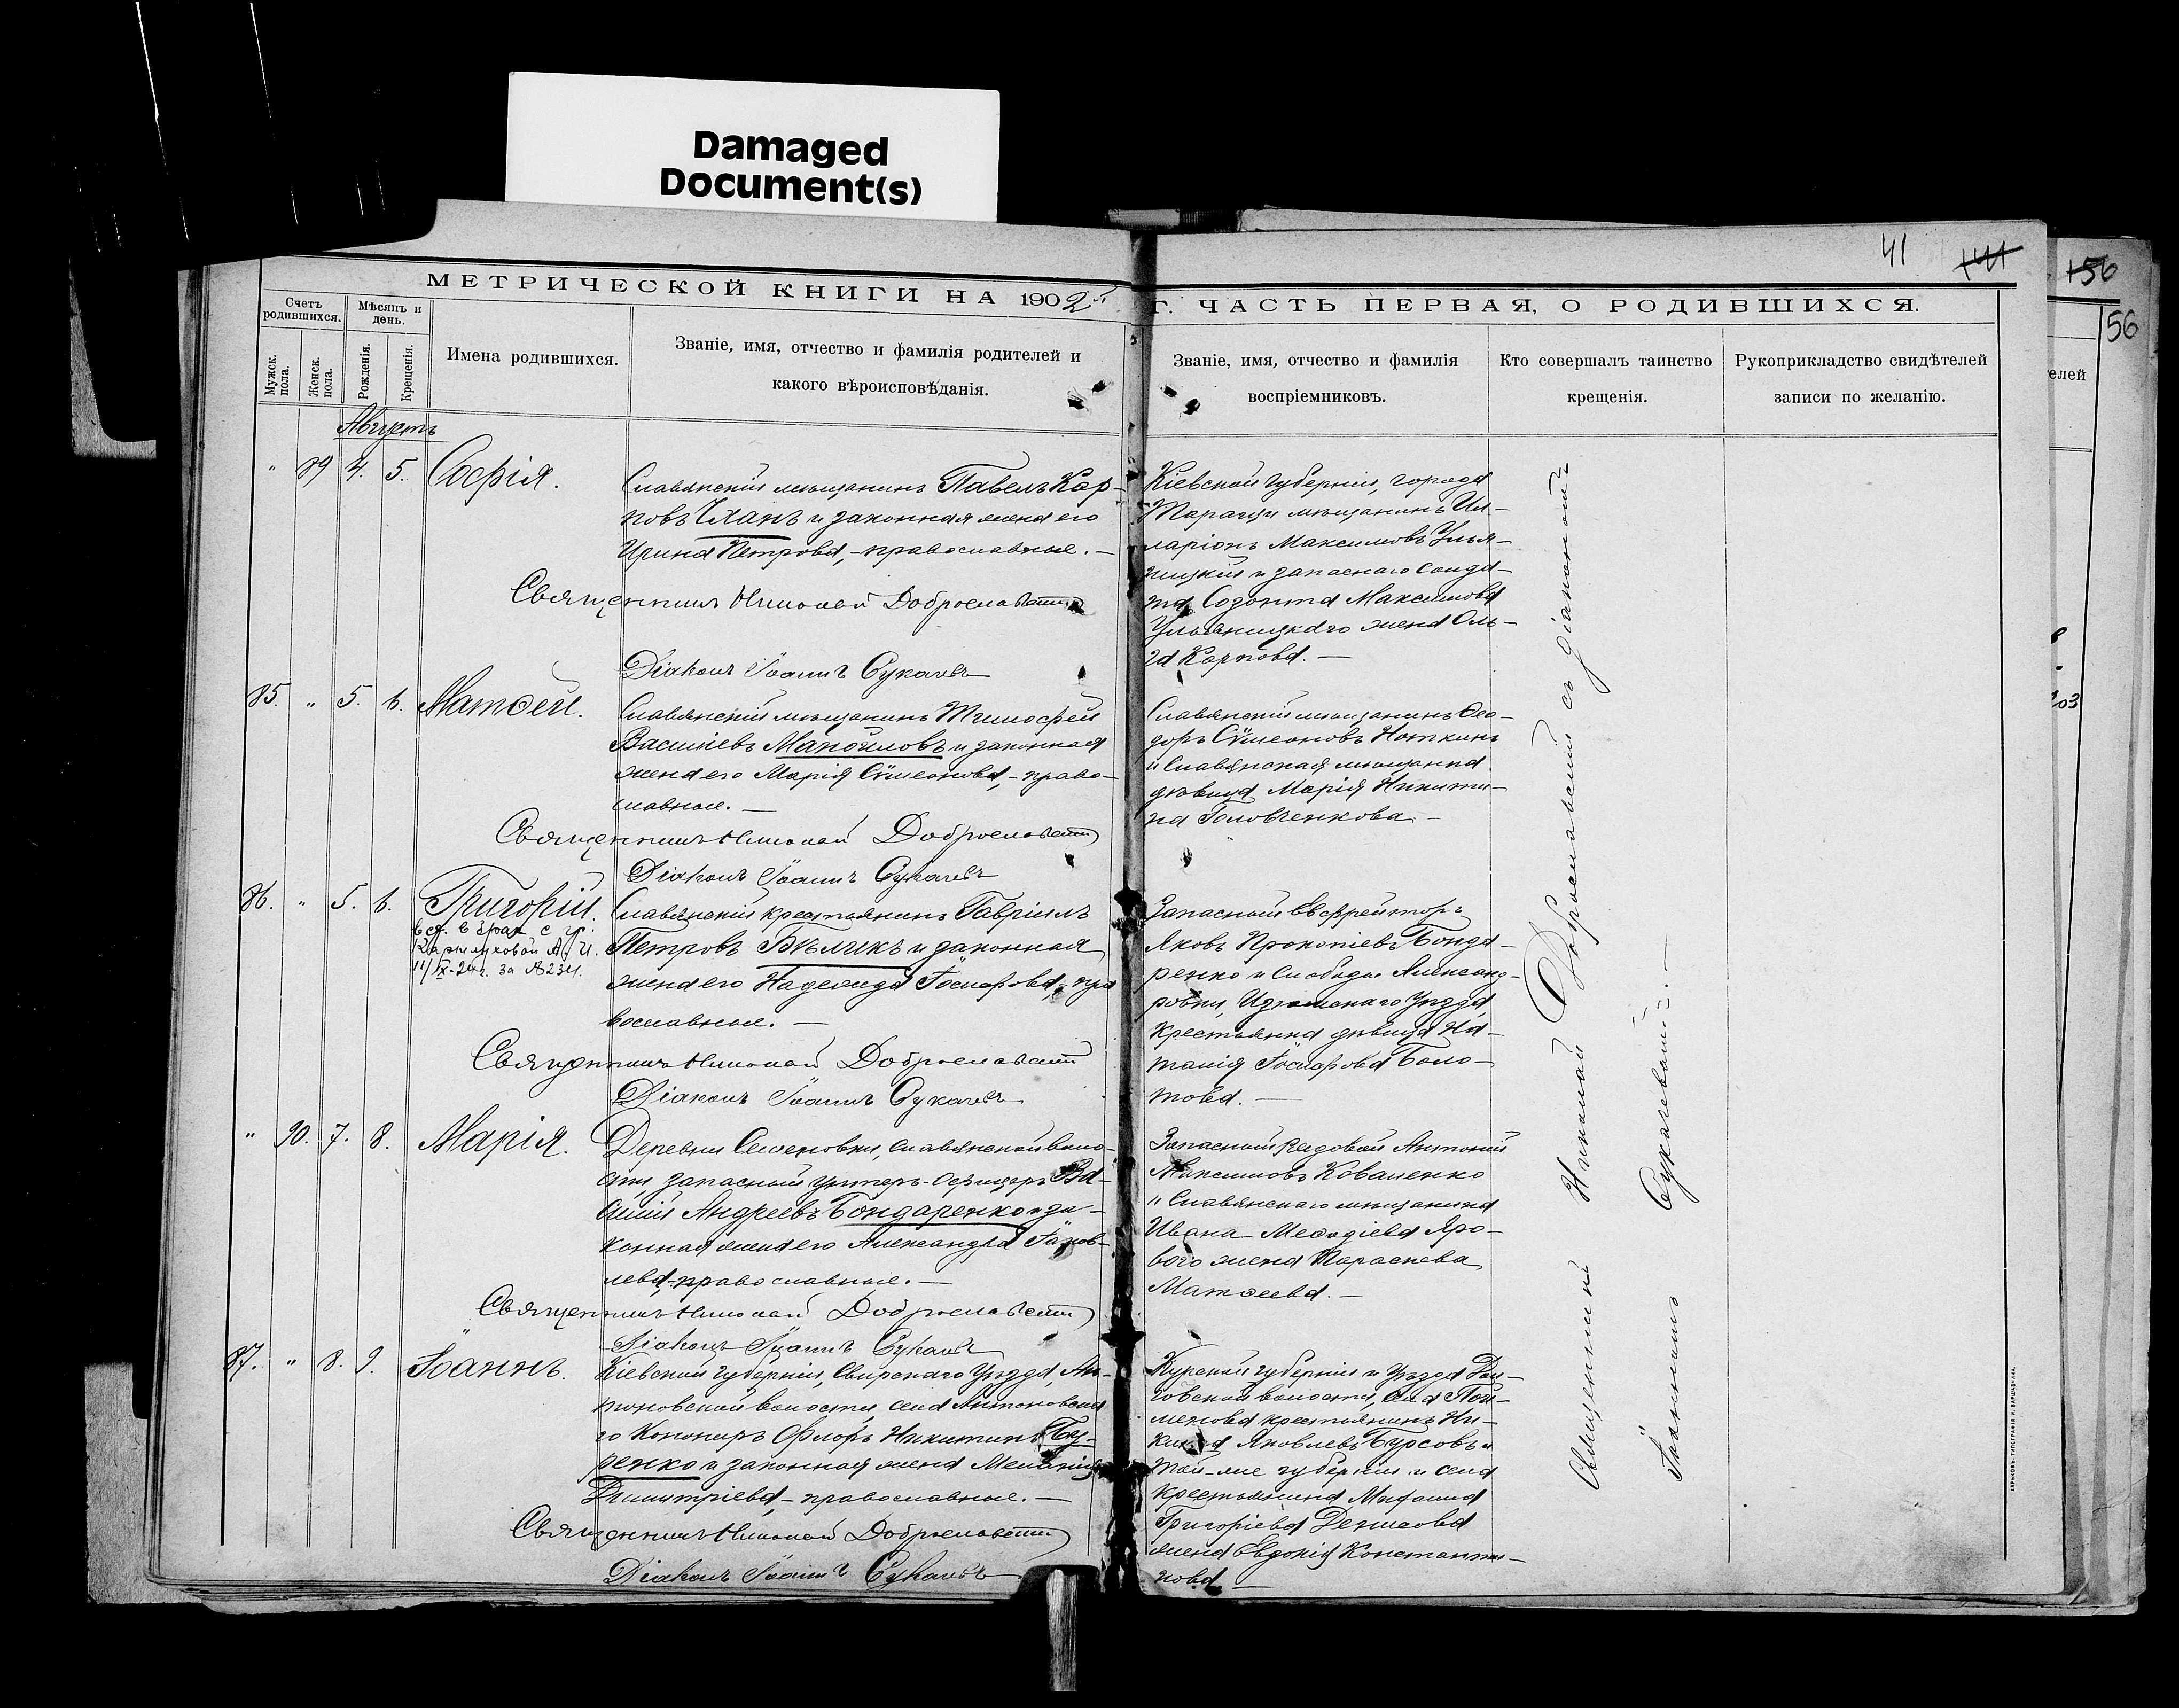 Damaged
Document(s)
41
56
56
МЕТРИЧЕСКОЙ КНИГИ НА 1902 Г. ЧАСТЬ ПЕРВАЯ, О РОДИВШИХСЯ.
Счетъ родившихся.
Мѣсяцъ и день.
Мужск. пола.
Женск. пола.
Рожденія.
Крещенія.
Имена родившихся.
Званіе, имя, отчество и фамилія родителей и
какого вѣроисповѣданія.
Званіе, имя, отчество и фамилія
воспріемниковъ.
Кто совершалъ таинство
крещенія.
Рукоприкладство свидѣтелей
записи по желанію.
елей
Августъ
" 89 4. 5. Софія.
Славянскій мѣщанинъ Павелъ Кар-
повъ Чханъ и законная жена его
Ирина Петрова, - православные. —
Священникъ Николай Доброславскій
Діаконъ Іоаннъ Сукачевъ
Кіевской губерніи, города
Таращи мѣщанинъ Ил-
ларіонъ Максимовъ Улья-
ницкій и запаснаго солда-
та Созонта Максимова
Ульяницкаго жена Оль-
га Карпова. —
85. " 5. 6. Матѳей.
Славянскій мѣщанинъ Тимофей
Василіевъ Манойловъ и законная
жена его Марія Сѵмеонова, - право-
славные. —
Священникъ Николай Доброславскій
Діаконъ Іоаннъ Сукачевъ
Славянскій мѣщанинъ Ѳео-
доръ Сѵмеоновъ Ноткинъ
и Славянская мѣщанка
дѣвица Марія Никити-
на Головченкова. —
86. " 5. 6. Григорій.
11/IX-24г. за №234.
Славянскій крестьянинъ Гавріилъ
Петровъ Бѣличкъ и законная
жена его Надежда Іосифова, - пра
вославные. —
Священникъ Николай Доброславскій
Діаконъ Іоаннъ Сукачевъ
Запасный Ефрейторъ
Яковъ Прокопіевъ Бонда-
ренко и слободы Александ-
ровки, Изюмскаго уѣзда,
крестьянка дѣвица На-
талія Іосифова Боло-
това. —
" 90. 7. 8. Марія.
Деревни Семеновки, Славянской воло-
сти, запасный унтеръ-офицеръ Ва-
силій Андреевъ Бондаренко и за-
конная жена его Александра Іаков-
лева, - православные. —
Священникъ Николай Доброславскій
Діаконъ Іоаннъ Сукачевъ
Запасный рядовой Антоній
Максимовъ Коваленко
и Славянскаго мѣщанина
Ивана Меѳодіева Яро-
вого жена Параскева
Матѳеева. —
87. " 8. 9. Іоаннъ.
Кіевской губерніи, Сквирскаго уѣзда, Ан-
тоновской волости, села Антоновска
го Конониръ Флоръ Никитинъ Бу-
ренко и законная жена Меланія
Димитріева, - православные. —
Священникъ Николай Доброславскій
Діаконъ Іоаннъ Сукачевъ
Курской губерніи и уѣзда
волости, села
крестьянинъ Ни-
кита Яковлевъ Бурсовъ и
той-же губерніи и села
крестьянина
Григоріева Денисова
жена Евдокія Константи-
нова —
Священникъ Николай Доброславскій съ діакономъ
Іоанномъ Сукачевымъ. —